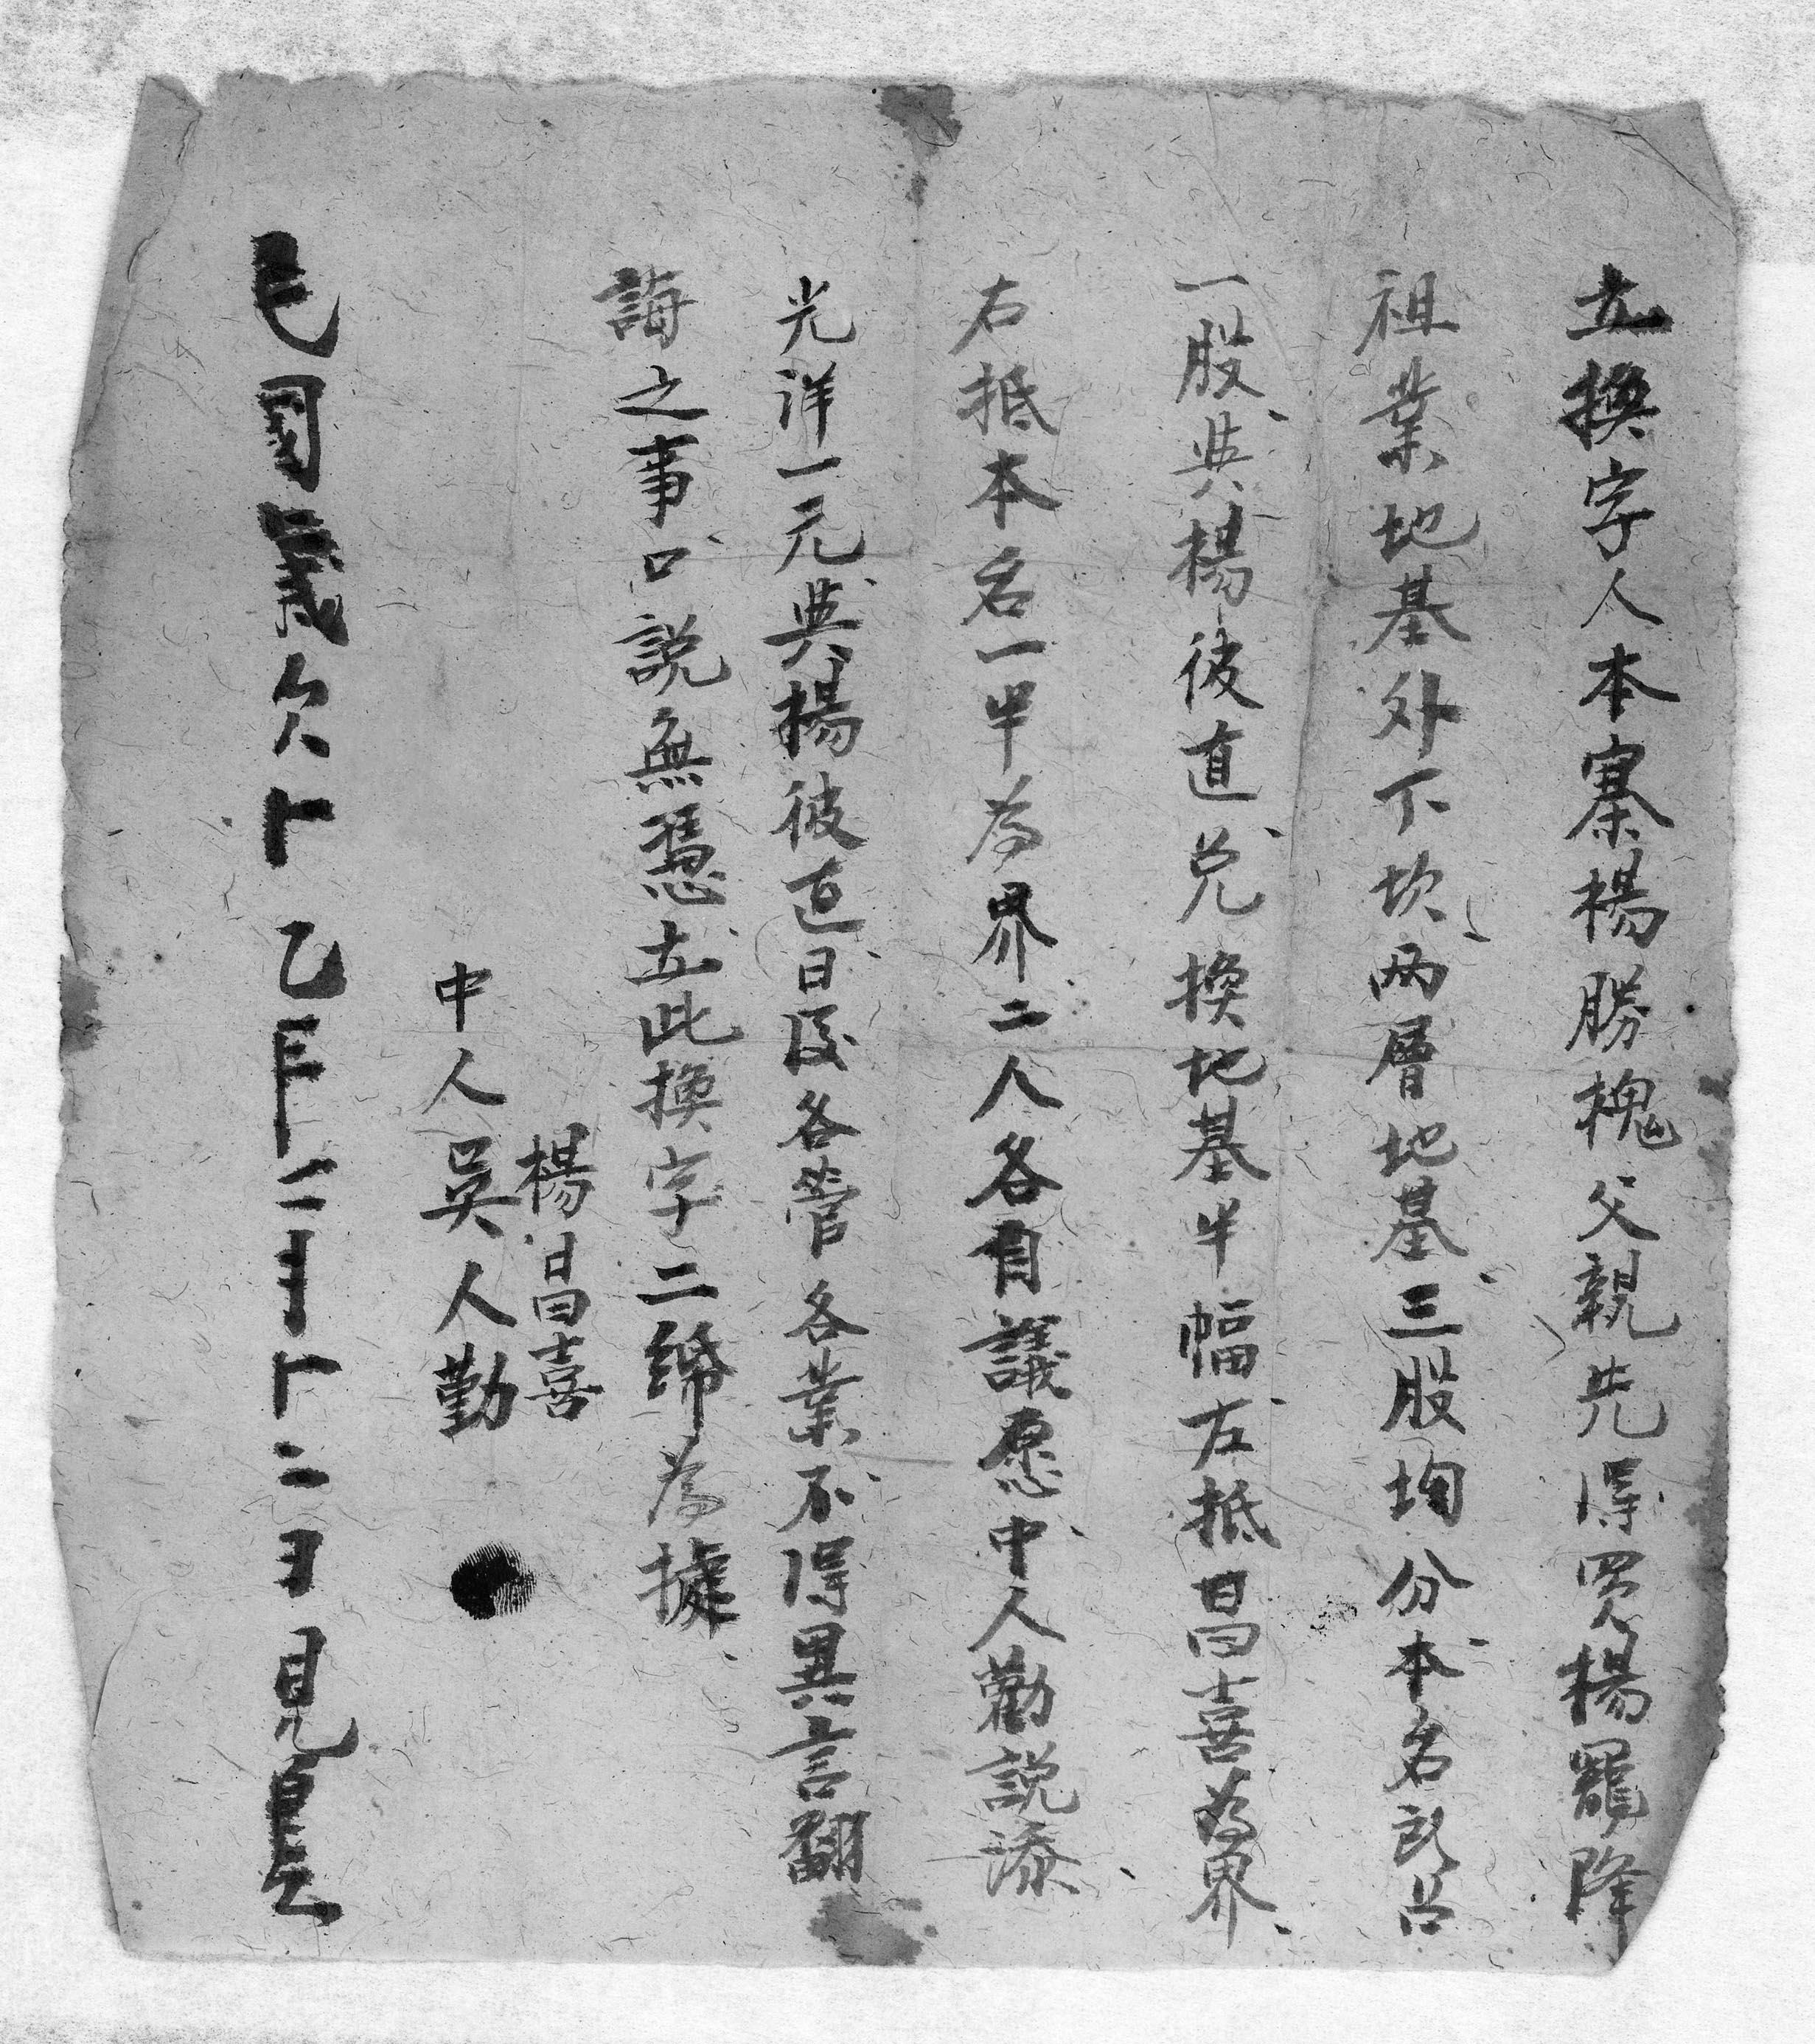 立換字人本寨楊勝槐父親先得買楊羅降
祖業地基外下坎兩層地基三股均分本名
一股與楊彼直兑換地基半幅左抵昌喜為界
右抵本名一半為界二人各自議愿中人勸説添
光洋一元與楊彼直日後各管各業不得異言翻
誨之事口説無憑立此換字二締為據
楊昌喜
中人吳人勤
乙年二月十二日